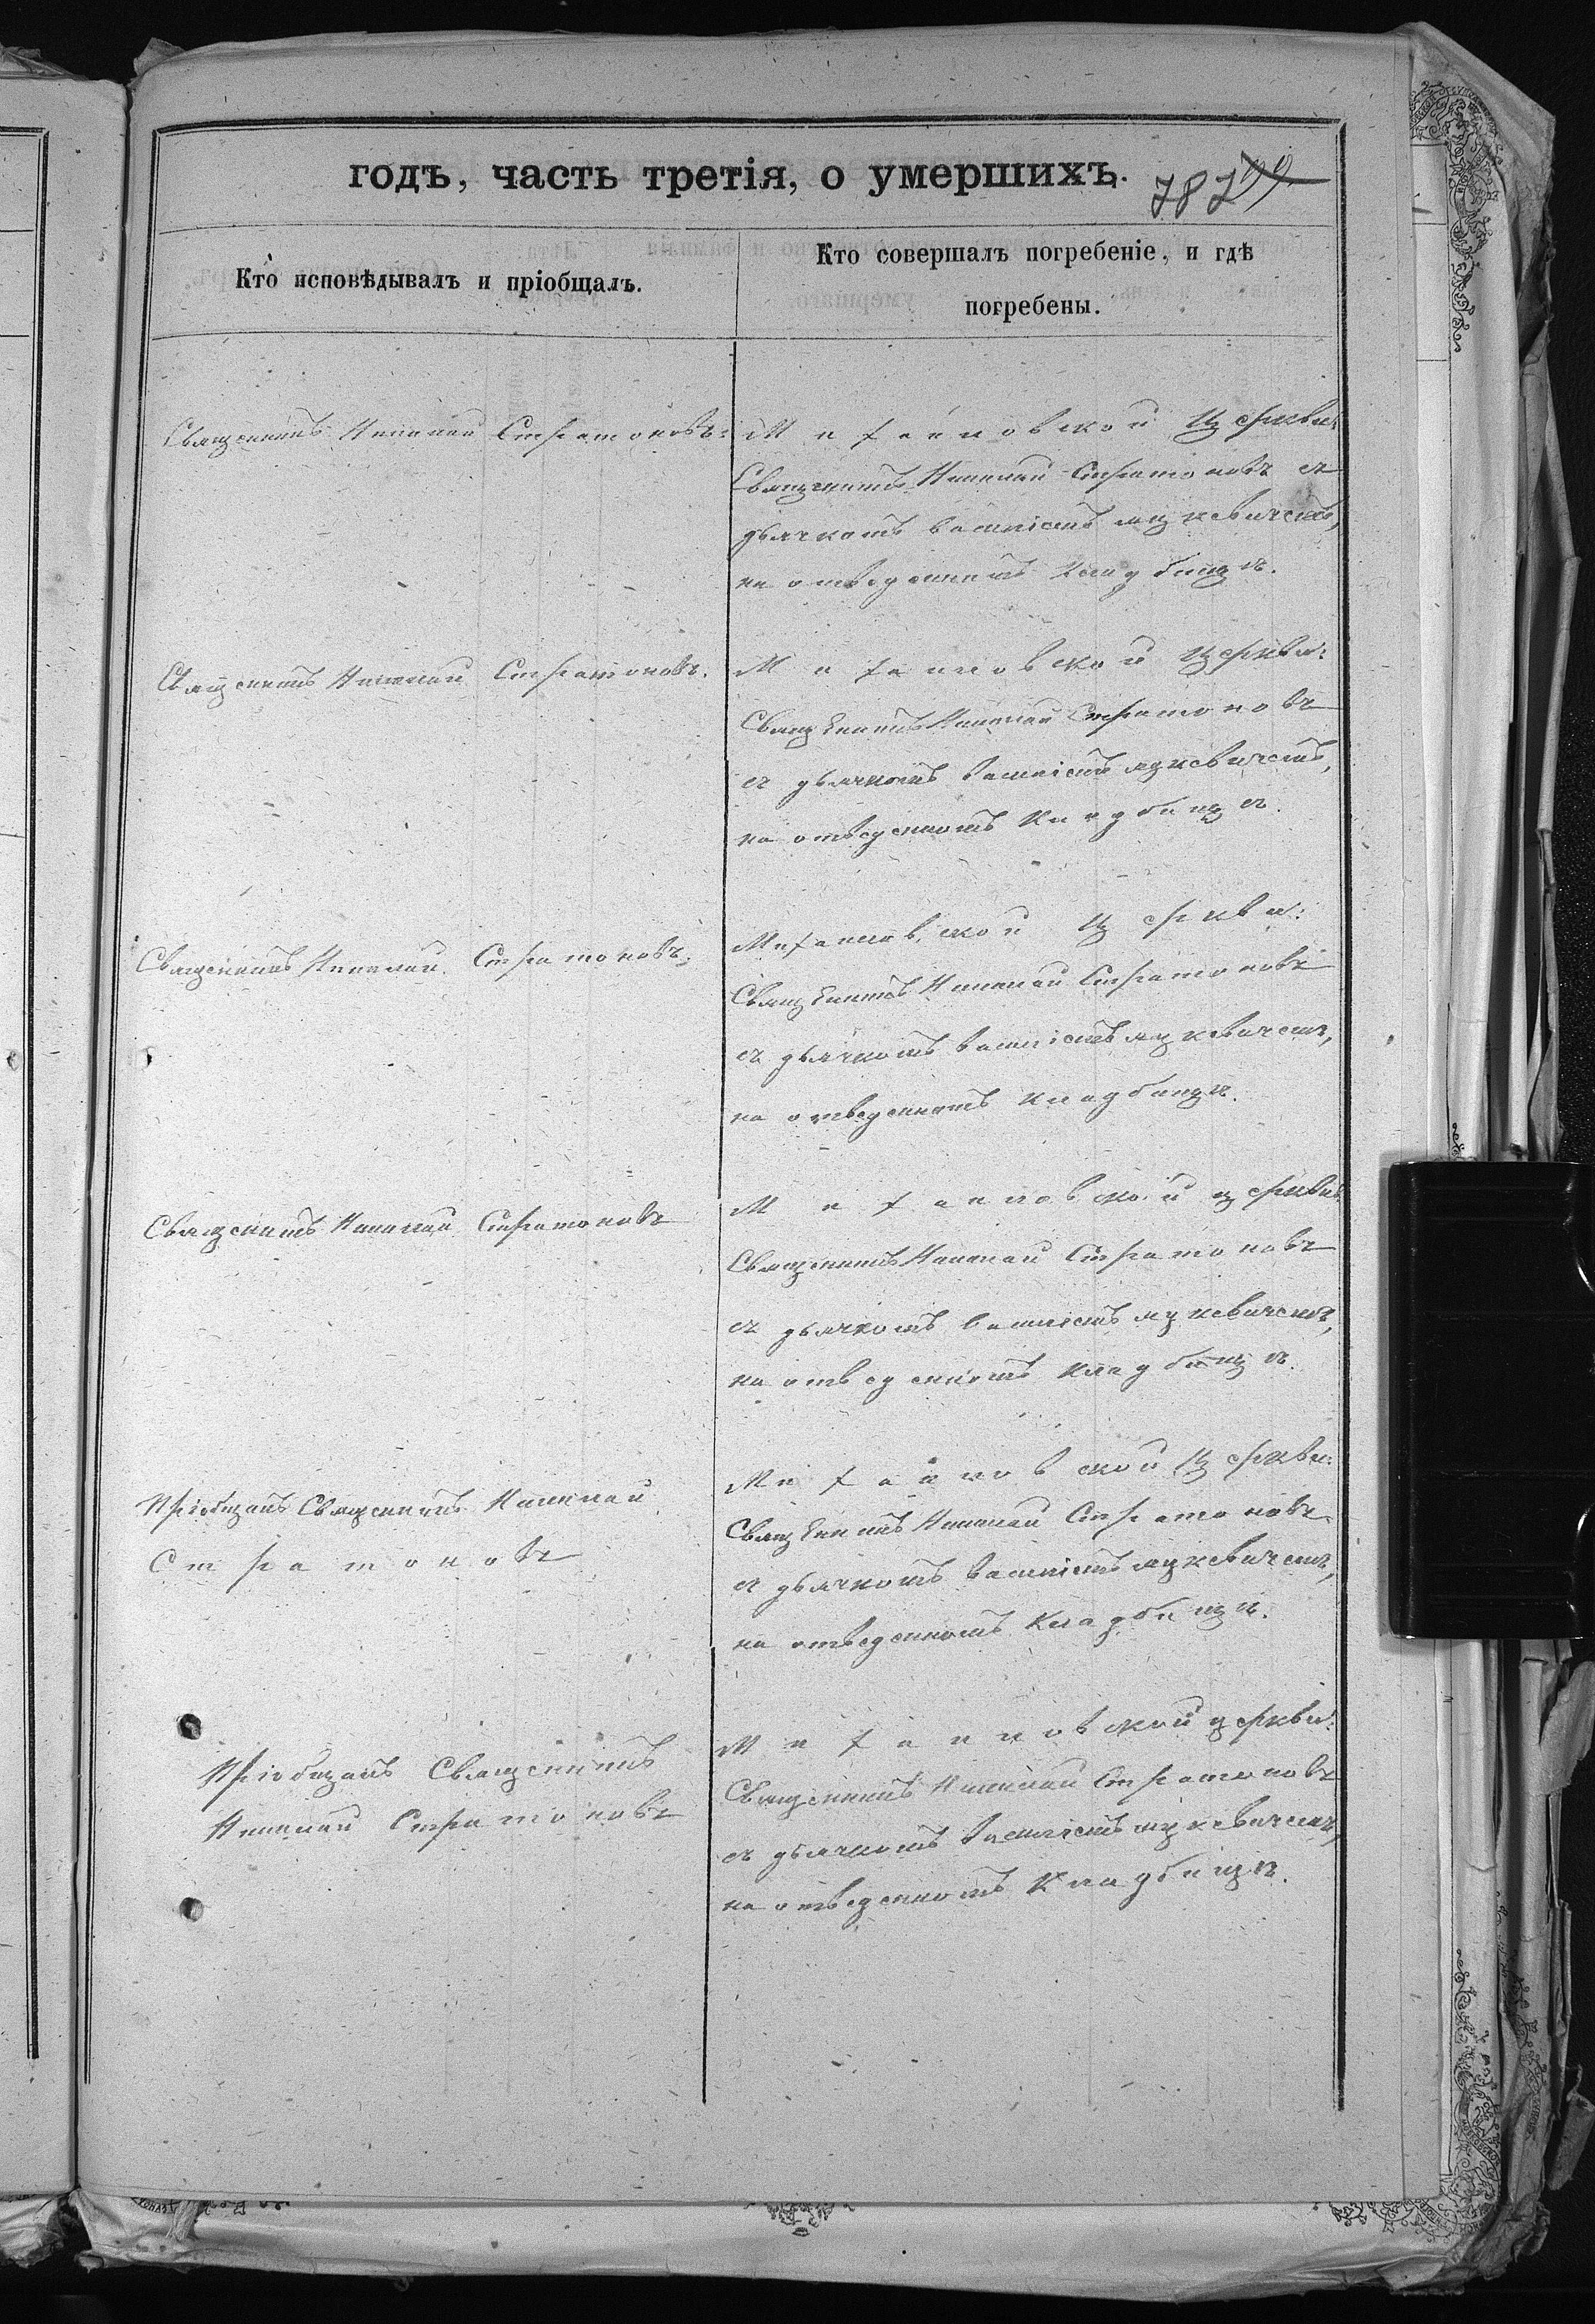 годъ, часть третія, о умершихъ.
787
Кто исповѣдывалъ и пріобщалъ.
Кто совершалъ погребеніе, и гдѣ
погребены.
Священникъ Николай Стратоновъ.
Михайловской церкви:
Священникъ Николай Стратоновъ съ
дьячкомъ Василіемъ
на отведенномъ кладбищѣ.
Священникъ Николай Стратоновъ.
Михайловской церкви:
Священникъ Николай Стратоновъ
съ дьячкомъ Василіемъ
на отведенномъ кладбищѣ.
Священникъ Николай Стратоновъ.
Михайловской церкви:
Священникъ Николай Стратоновъ
съ дьячкомъ Василіемъ
на отведенномъ кладбищѣ.
Священникъ Николай Стратоновъ
Михайловской церкви
Священникъ Николай Стратоновъ
съ дьячкомъ Василіемъ
на отведенномъ кладбищѣ.
Пріобщалъ Священникъ Николай
Стратоновъ
Михайловской церкви:
Священникъ Николай Стратоновъ
съ дьячкомъ Василіемъ
на отведенномъ кладбищѣ.
Пріобщалъ Священникъ
Николай Стратоновъ
Михайловской церкви:
Священникъ Николай Стратоновъ
съ дьячкомъ Василіемъ
на отведенномъ кладбищѣ.